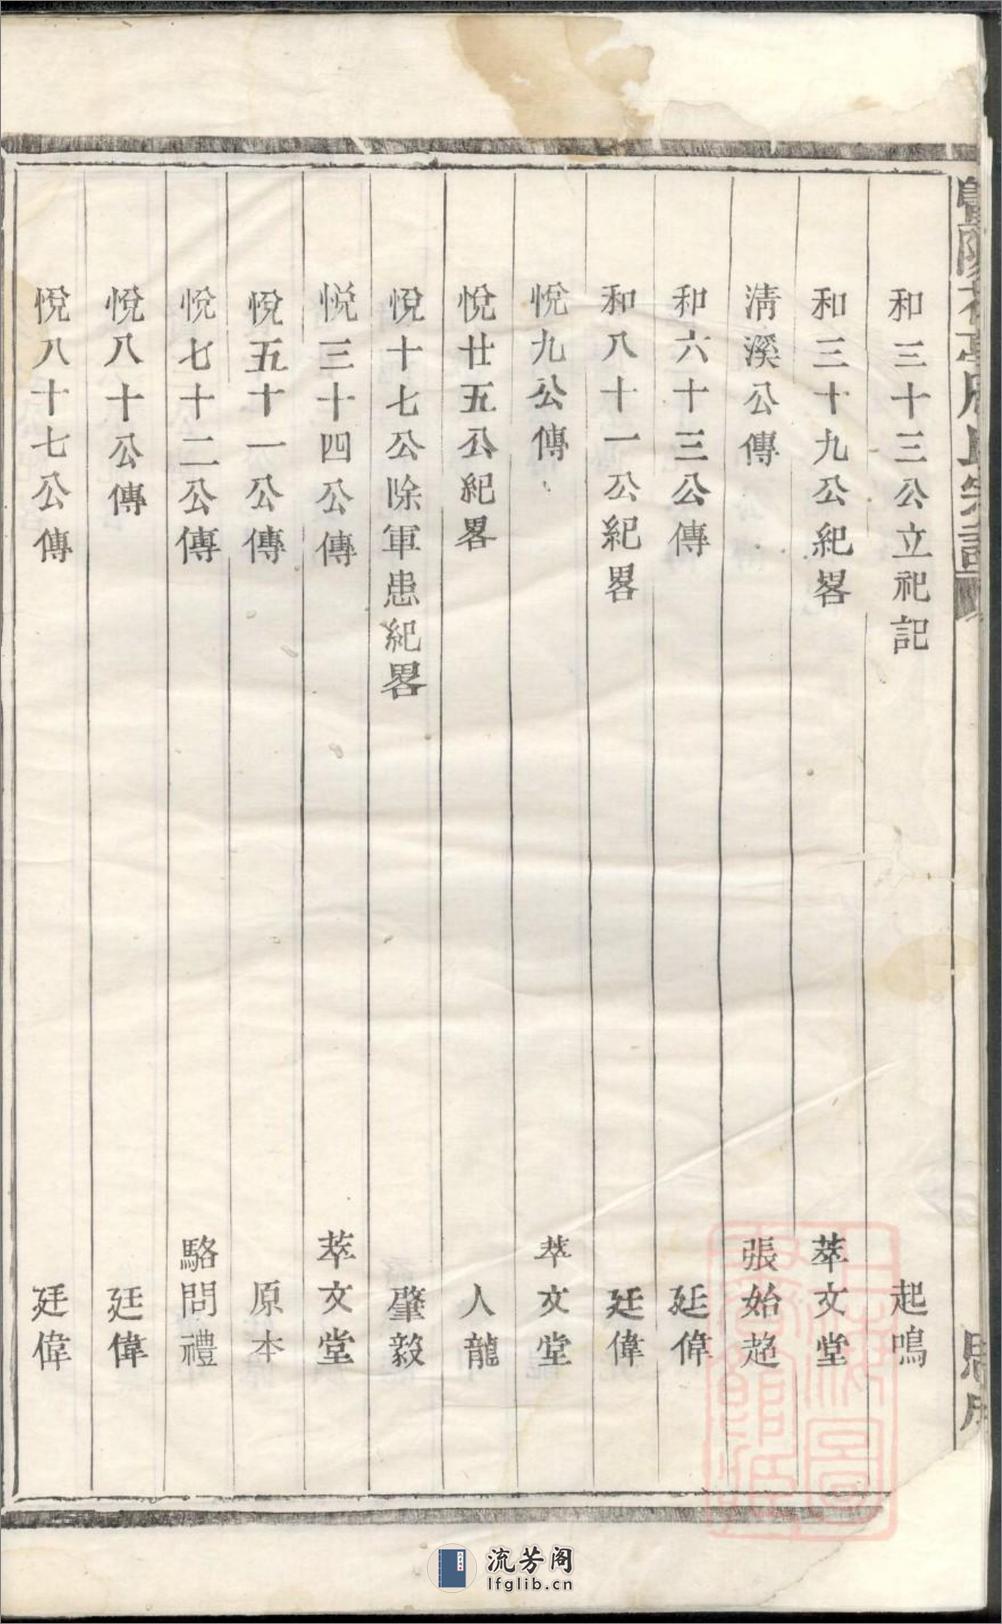 和三十三公立祀記 起鳴
和三十九公紀畧 萃文堂
淸溪公傳 張始超
和六十三公傳 廷偉
和八十一公紀畧 廷偉
悅九公傳 萃文堂
悅廿五公紀畧 人龍
悅十七公除軍患紀畧 肇毅
悅三十四公傳 萃文堂
悅五十一公傳 原本
悅七十二公傳 駱問禮
悅八十公傳 廷偉
悅八十七公傳 廷偉
流芳阁
lfglib.cn